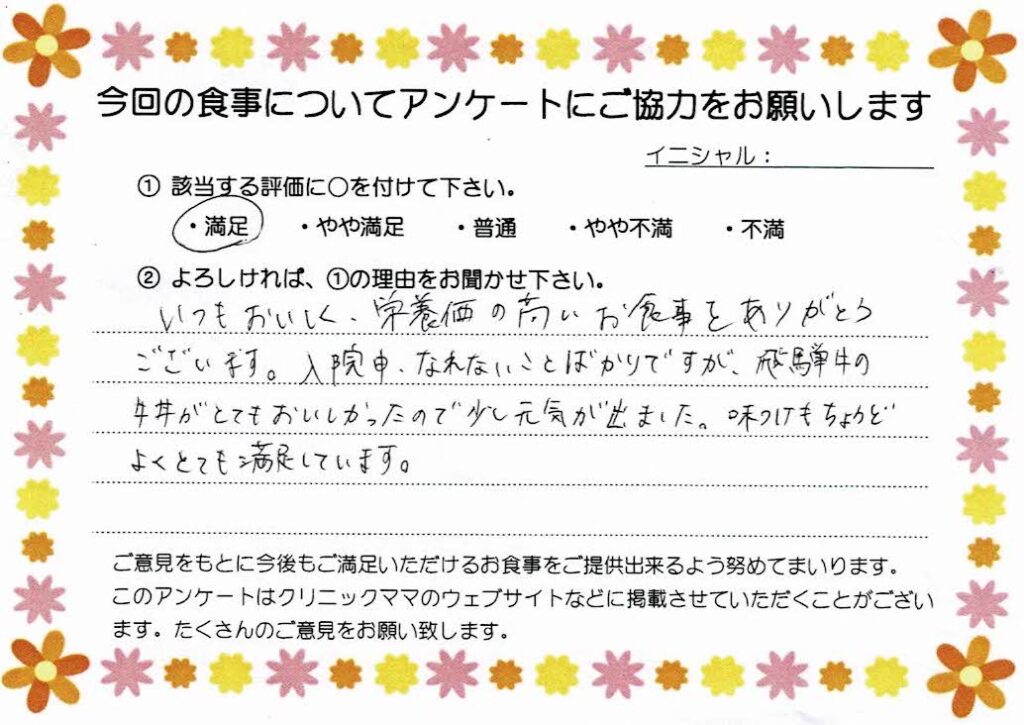 今回の食事についてアンケートにご協力をお願いします
イニシャル：
① 該当する評価に○を付けて下さい。
・満足 ・やや満足 ・普通 ・やや不満 ・不満
② よろしければ、①の理由をお聞かせ下さい。
いつもおいしく、栄養価の高いお食事をありがとう
ございます。入院中、なれないことばかりですが、飛騨牛の
牛丼がとてもおいしかったので少し元気が出ました。味つけもちょうど
よくとても満足しています。
ご意見をもとに今後もご満足いただけるお食事をご提供出来るよう努めてまいります。
このアンケートはクリニックママのウェブサイトなどに掲載させていただくことがござい
ます。たくさんのご意見をお願い致します。